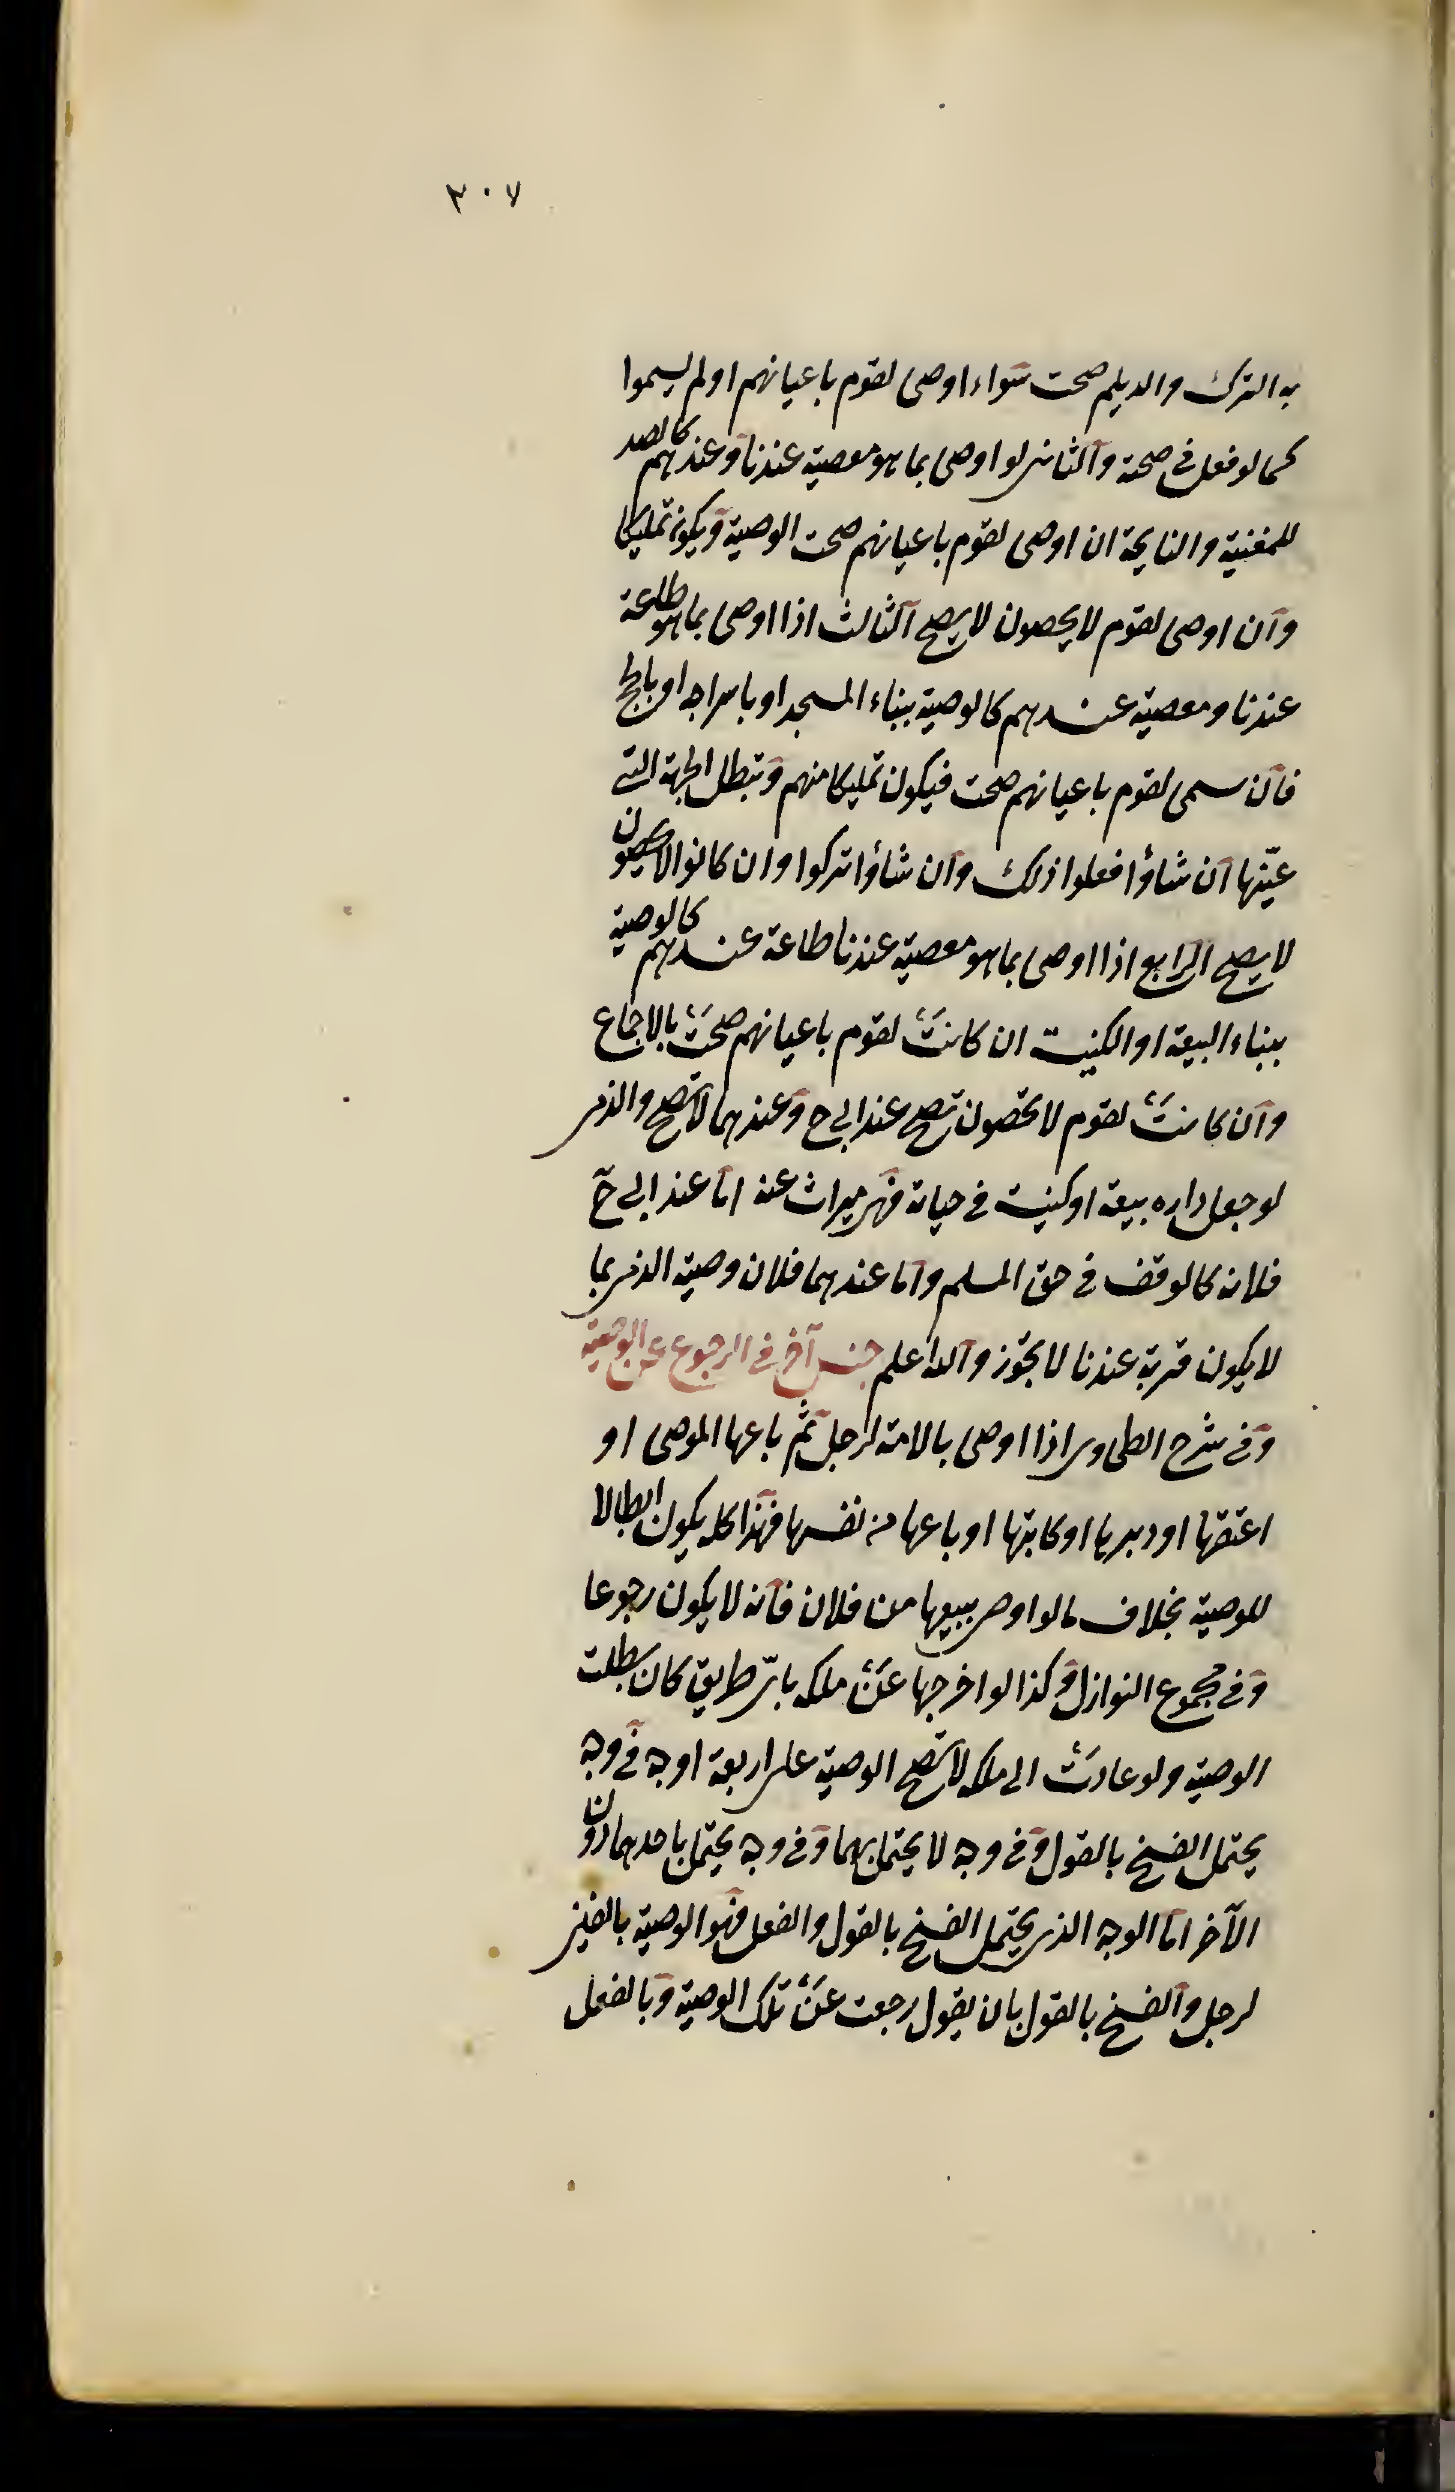 ٣٠٧
به الترك والديلم صحت سواء اوصى لقوم باعيانهم او لم يسموا
كما لو فعل في صحته والثاني لو اوصى بما هو معصية عندنا وعندهم كالصد
للمغنية والنايحة ان اوصى لقوم باعيانهم صحت الوصية ويكون تمليكا
وان اوصى لقوم لا يحصون لا يصح الثالث اذا اوصى بما هو طاعة
عندنا ومعصية عندهم كالوصية ببناء المسجد او باسراجه او بالحج
فان سمى لقوم باعيانهم صحت فيكون تمليكا منهم وتبطل الجهة التي
عينها ان شاؤا فعلوا ذلك وان شاؤا تركوا وان كانوا لا يحصون
لا يصح الرابع اذا اوصى بما هو معصية عندنا طاعة عندهم كالوصية
ببناء البيعة او الكنيسة ان كانت لقوم باعيانهم صحت بالاجماع
وان كانت لقوم لا يحصون تصح عند ابي ح وعندهما لا تصح والذمي
لو جعل داره بيعة او كنيسة في حياته فهي ميراث عنه اما عند ابي ح
فلانه كالوقف في حق المسلم واما عندهما فلان وصية الذمي بما
لا يكون قربة عندنا لا يجوز والله اعلم جنس آخر في الرجوع عن الوصية
وفي شرح الطحاوي اذا اوصى بالامة لرجل ثم باعها الموصى او
اعتقها او دبرها او كاتبها او باعها من نفسها فهذا كله يكون ابطالا
للوصية بخلاف ما لو اوصى ببيعها من فلان فانه لا يكون رجوعا
وفي مجموع النوازل وكذا لو اخرجها عن ملكه باي طريق كان بطلت
الوصية ولو عادت الى ملكه لا تصح الوصية على اربعة اوجه في وجه
يحتمل الفسخ بالقول وفي وجه لا يحتمل بهما وفي وجه يحتمل باحدهما دون
الآخر اما الوجه الذي يحتمل الفسخ بالقول والفعل فهو الوصية بالعين
لرجل والفسخ بالقول بان يقول رجعت عن تلك الوصية وبالفعل